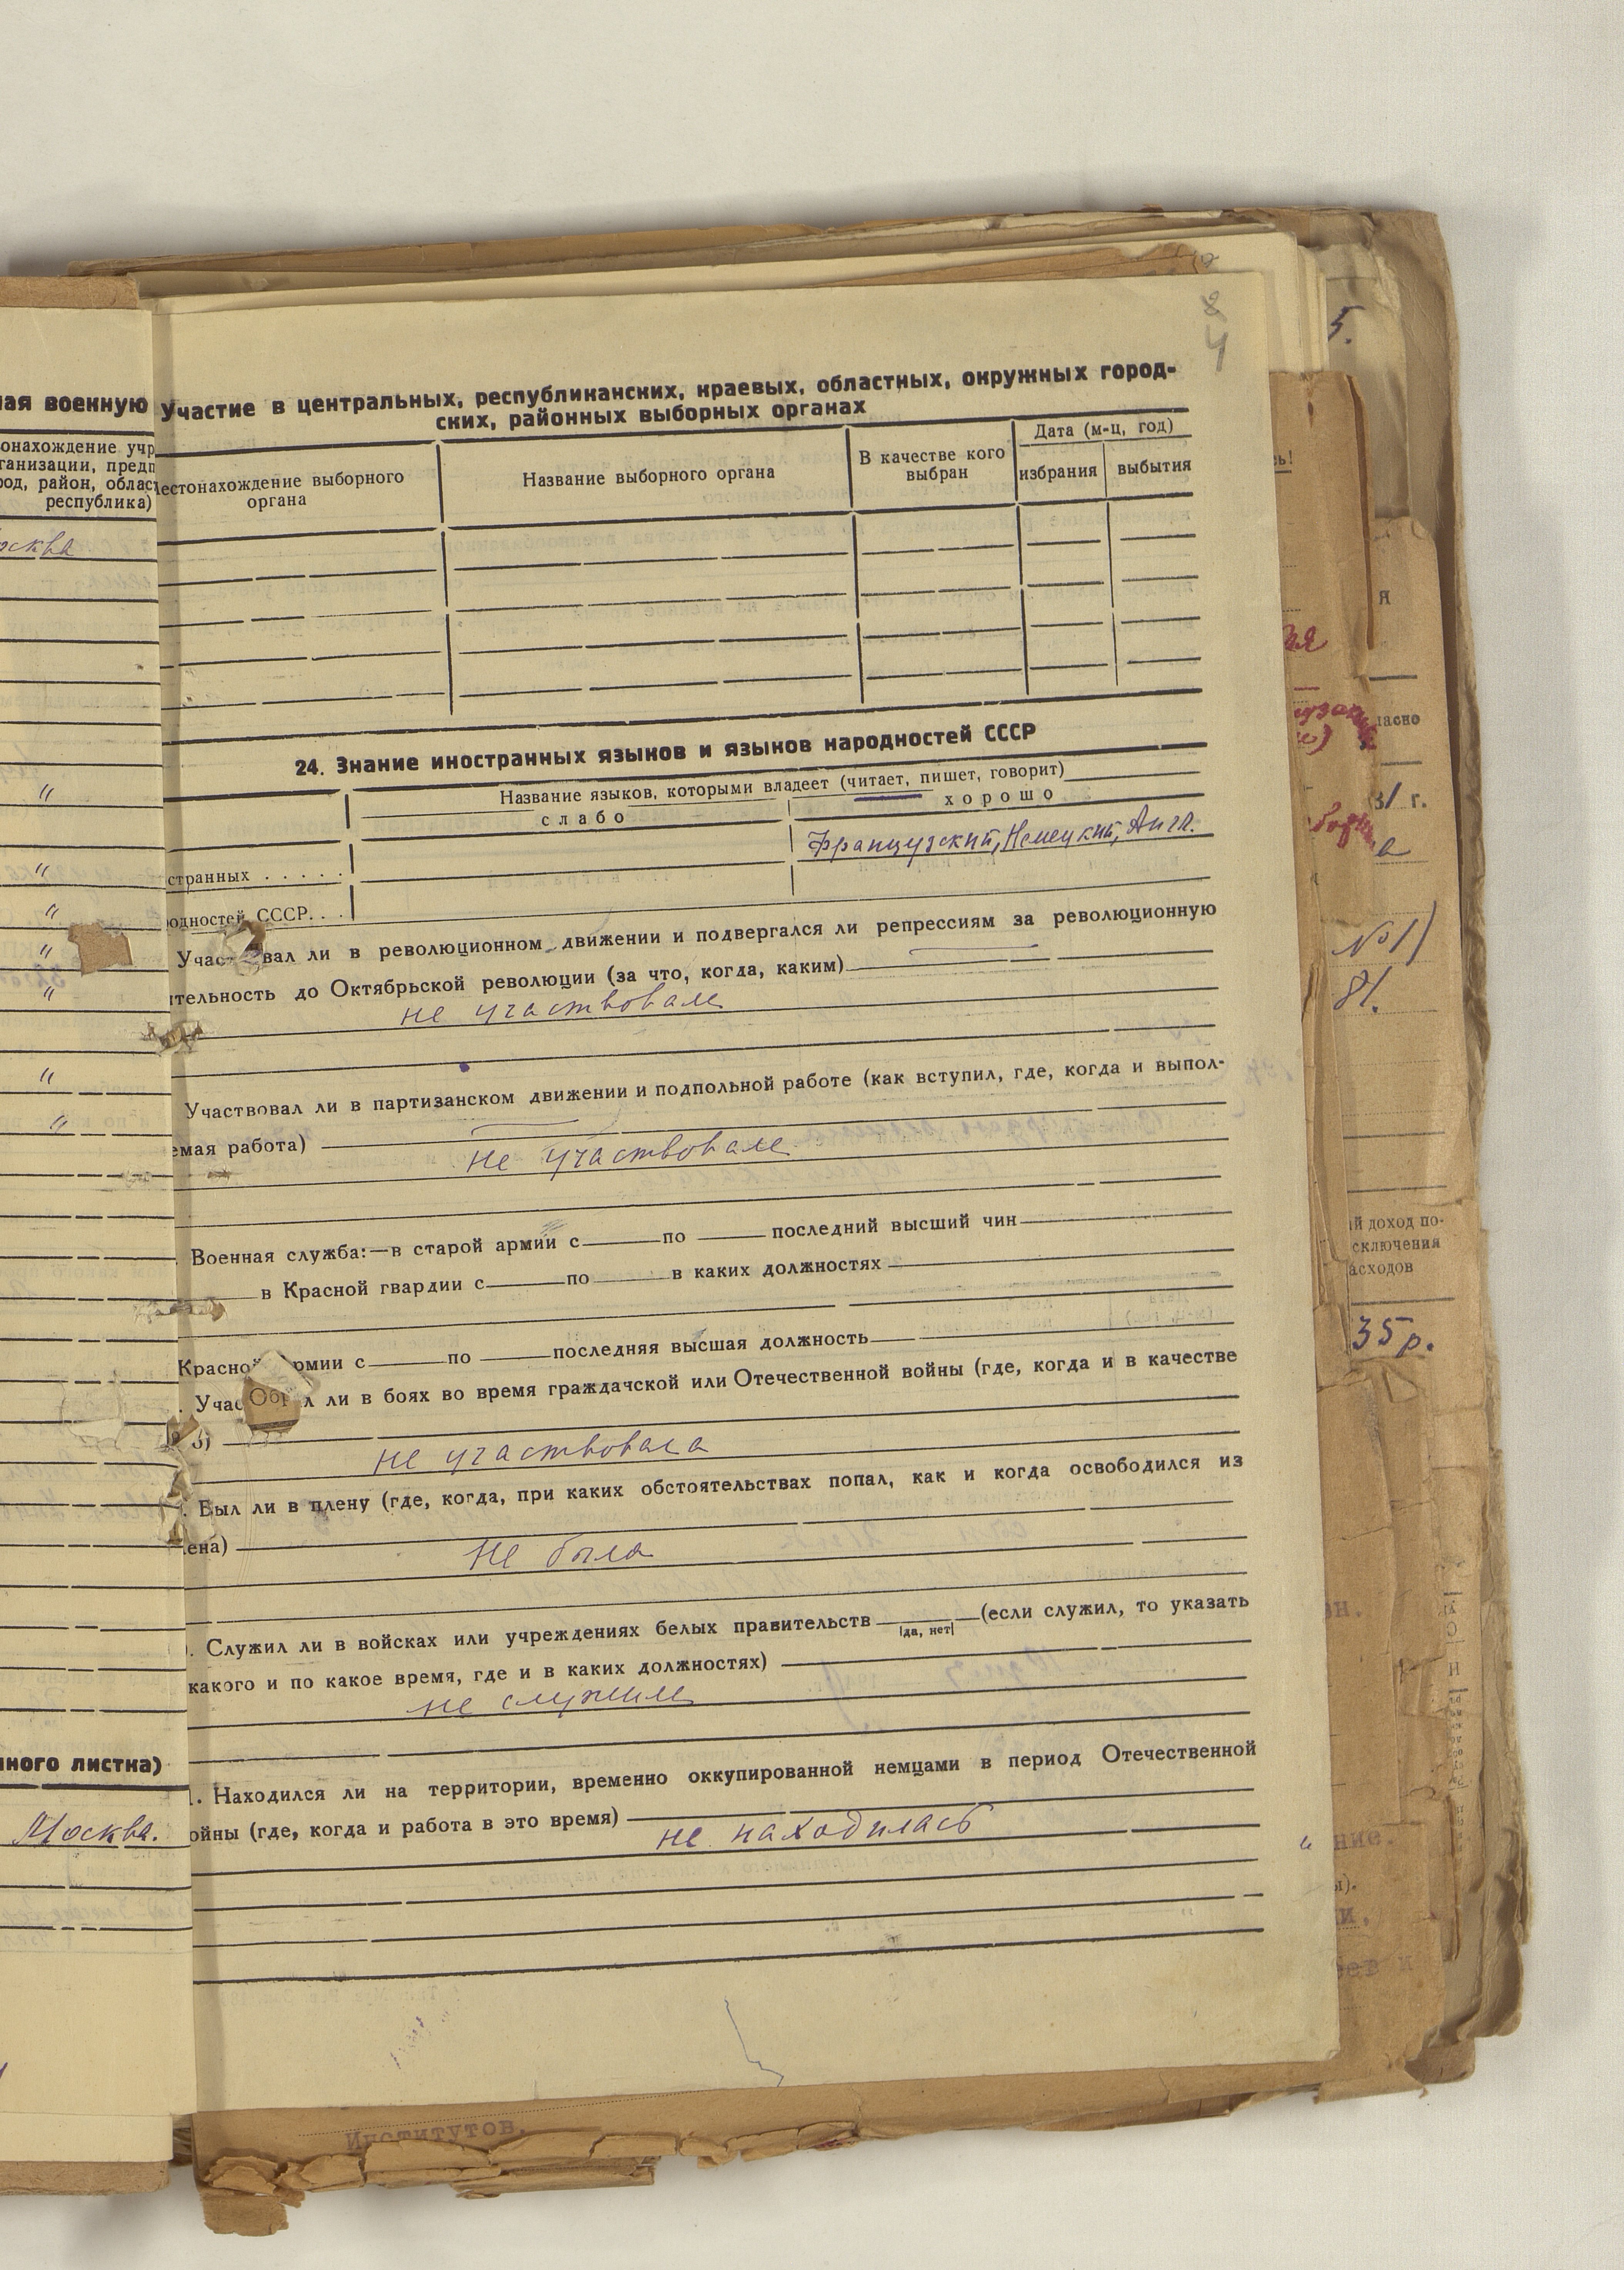 ая военную
онахождение учр
ганизации, предп
род, район, облас
республика)
осква
"
"
"
"
"
"
"
ного листка)
Москва.
8
4
Участие в центральных, республиканских, краевых, областных, окружных город-
ских, районных выборных органах
естонахождение выборного
органа
Название выборного органа
В качестве кого
выбран
Дата (м-ц, год)
избрания
выбытия
24. Знание иностранных языков и языков народностей СССР
Название языков, которыми владеет (читает, пишет, говорит)
слабо
хорошо
странных . . . . .
Французский, Немецкий, Англ.
одностей СССР. . .
вал ли в революционном движении и подвергался ли репрессиям за революционную
тельность до Октябрьской революции (за что, когда, каким)
не участвовала
Участвовал ли в партизанском движении и подпольной работе (как вступил, где, когда и выпол-
емая работа)
не участвовала
Военная служба:—в старой армии с по последний высший чин
в Красной гвардии с по в каких должностях
Красной рмии с по последняя высшая должность
Учас Обр л ли в боях во время граждачской или Отечественной войны (где, когда и в качестве
не участвовала
. Был ли в плену (где, когда, при каких обстоятельствах попал, как и когда освободился из
ена)
не была
. Служил ли в войсках или учреждениях белых правительств (если служил, то указать
|да, нет|
какого и по какое время, где и в каких должностях)
не служила
. Находился ли на территории, временно оккупированной немцами в период Отечественной
ойны (где, когда и работа в это время)
не находилась
Институтов.
5.
ь!
я
ая
ласно
31 г.
а
№1)
81.
й доход по-
сключения
асходов
35 р.
н.
ние.
ы).
и.